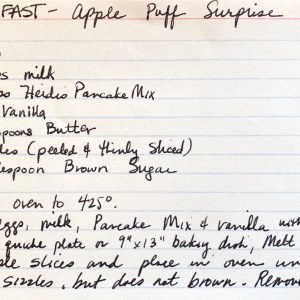 FAST - Apple Puff Surprise
s milk
Heidis Pancake Mix
Vanilla
spoons Butter
(peeled & thinly Sliced)
espoon Brown Sugar
oven to 425°.
eggs, milk, Pancake Mix & vanilla with
quiche plate or 9"x13" baking dish, Melt
ple slices and place in oven un
sizzles, but does not brown. Remov